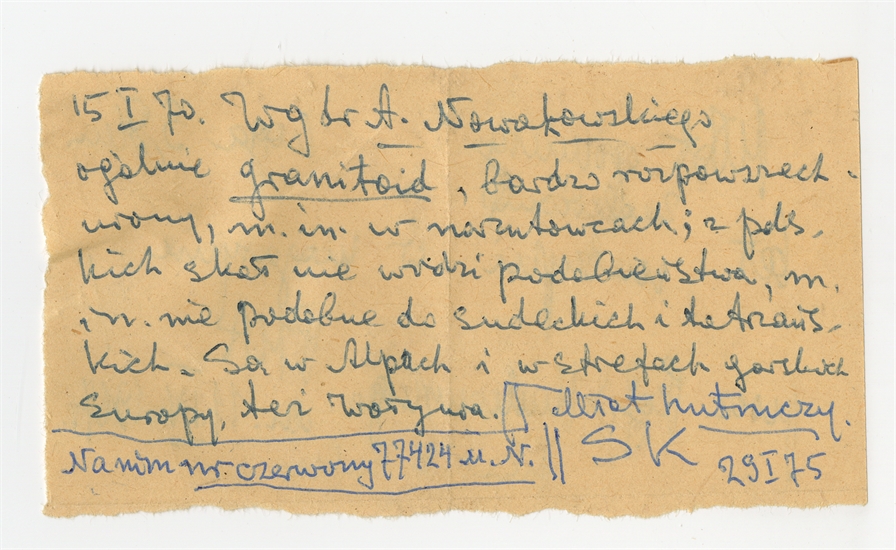 15 I 70. Wg dr A. Nowakowskiego
ogólnie granitoid, bardzo rozpowszech-
niony, m.in. w narzutowcach; z pols-
kich skał nie widzi podobieństwa, m.
in. nie podobne do sudeckich i tatrzańs-
kich. Są w Alpach i w strefach górskich
Europy, też Wołynia. Młot hutniczy.
Na nim nr. czerwony 77424 M.N. || SK 29 I 75